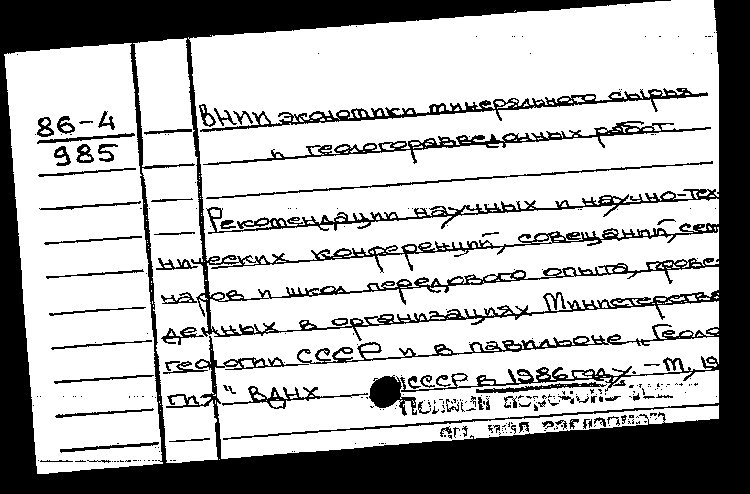 86-4
985
ВНИИ экономики минерального сырья
и геологоразведочных работ.
Рекомендации научных и научно-тех-
нических конференций, совещаний, сем
наров и школ передового опыта, прове-
денных в организациях Министерства
геологии СССР и в павильоне "Геоло
гия" ВДНХ СССР в 1986 году. – М., 19
Полный перечень
см. под заглавием